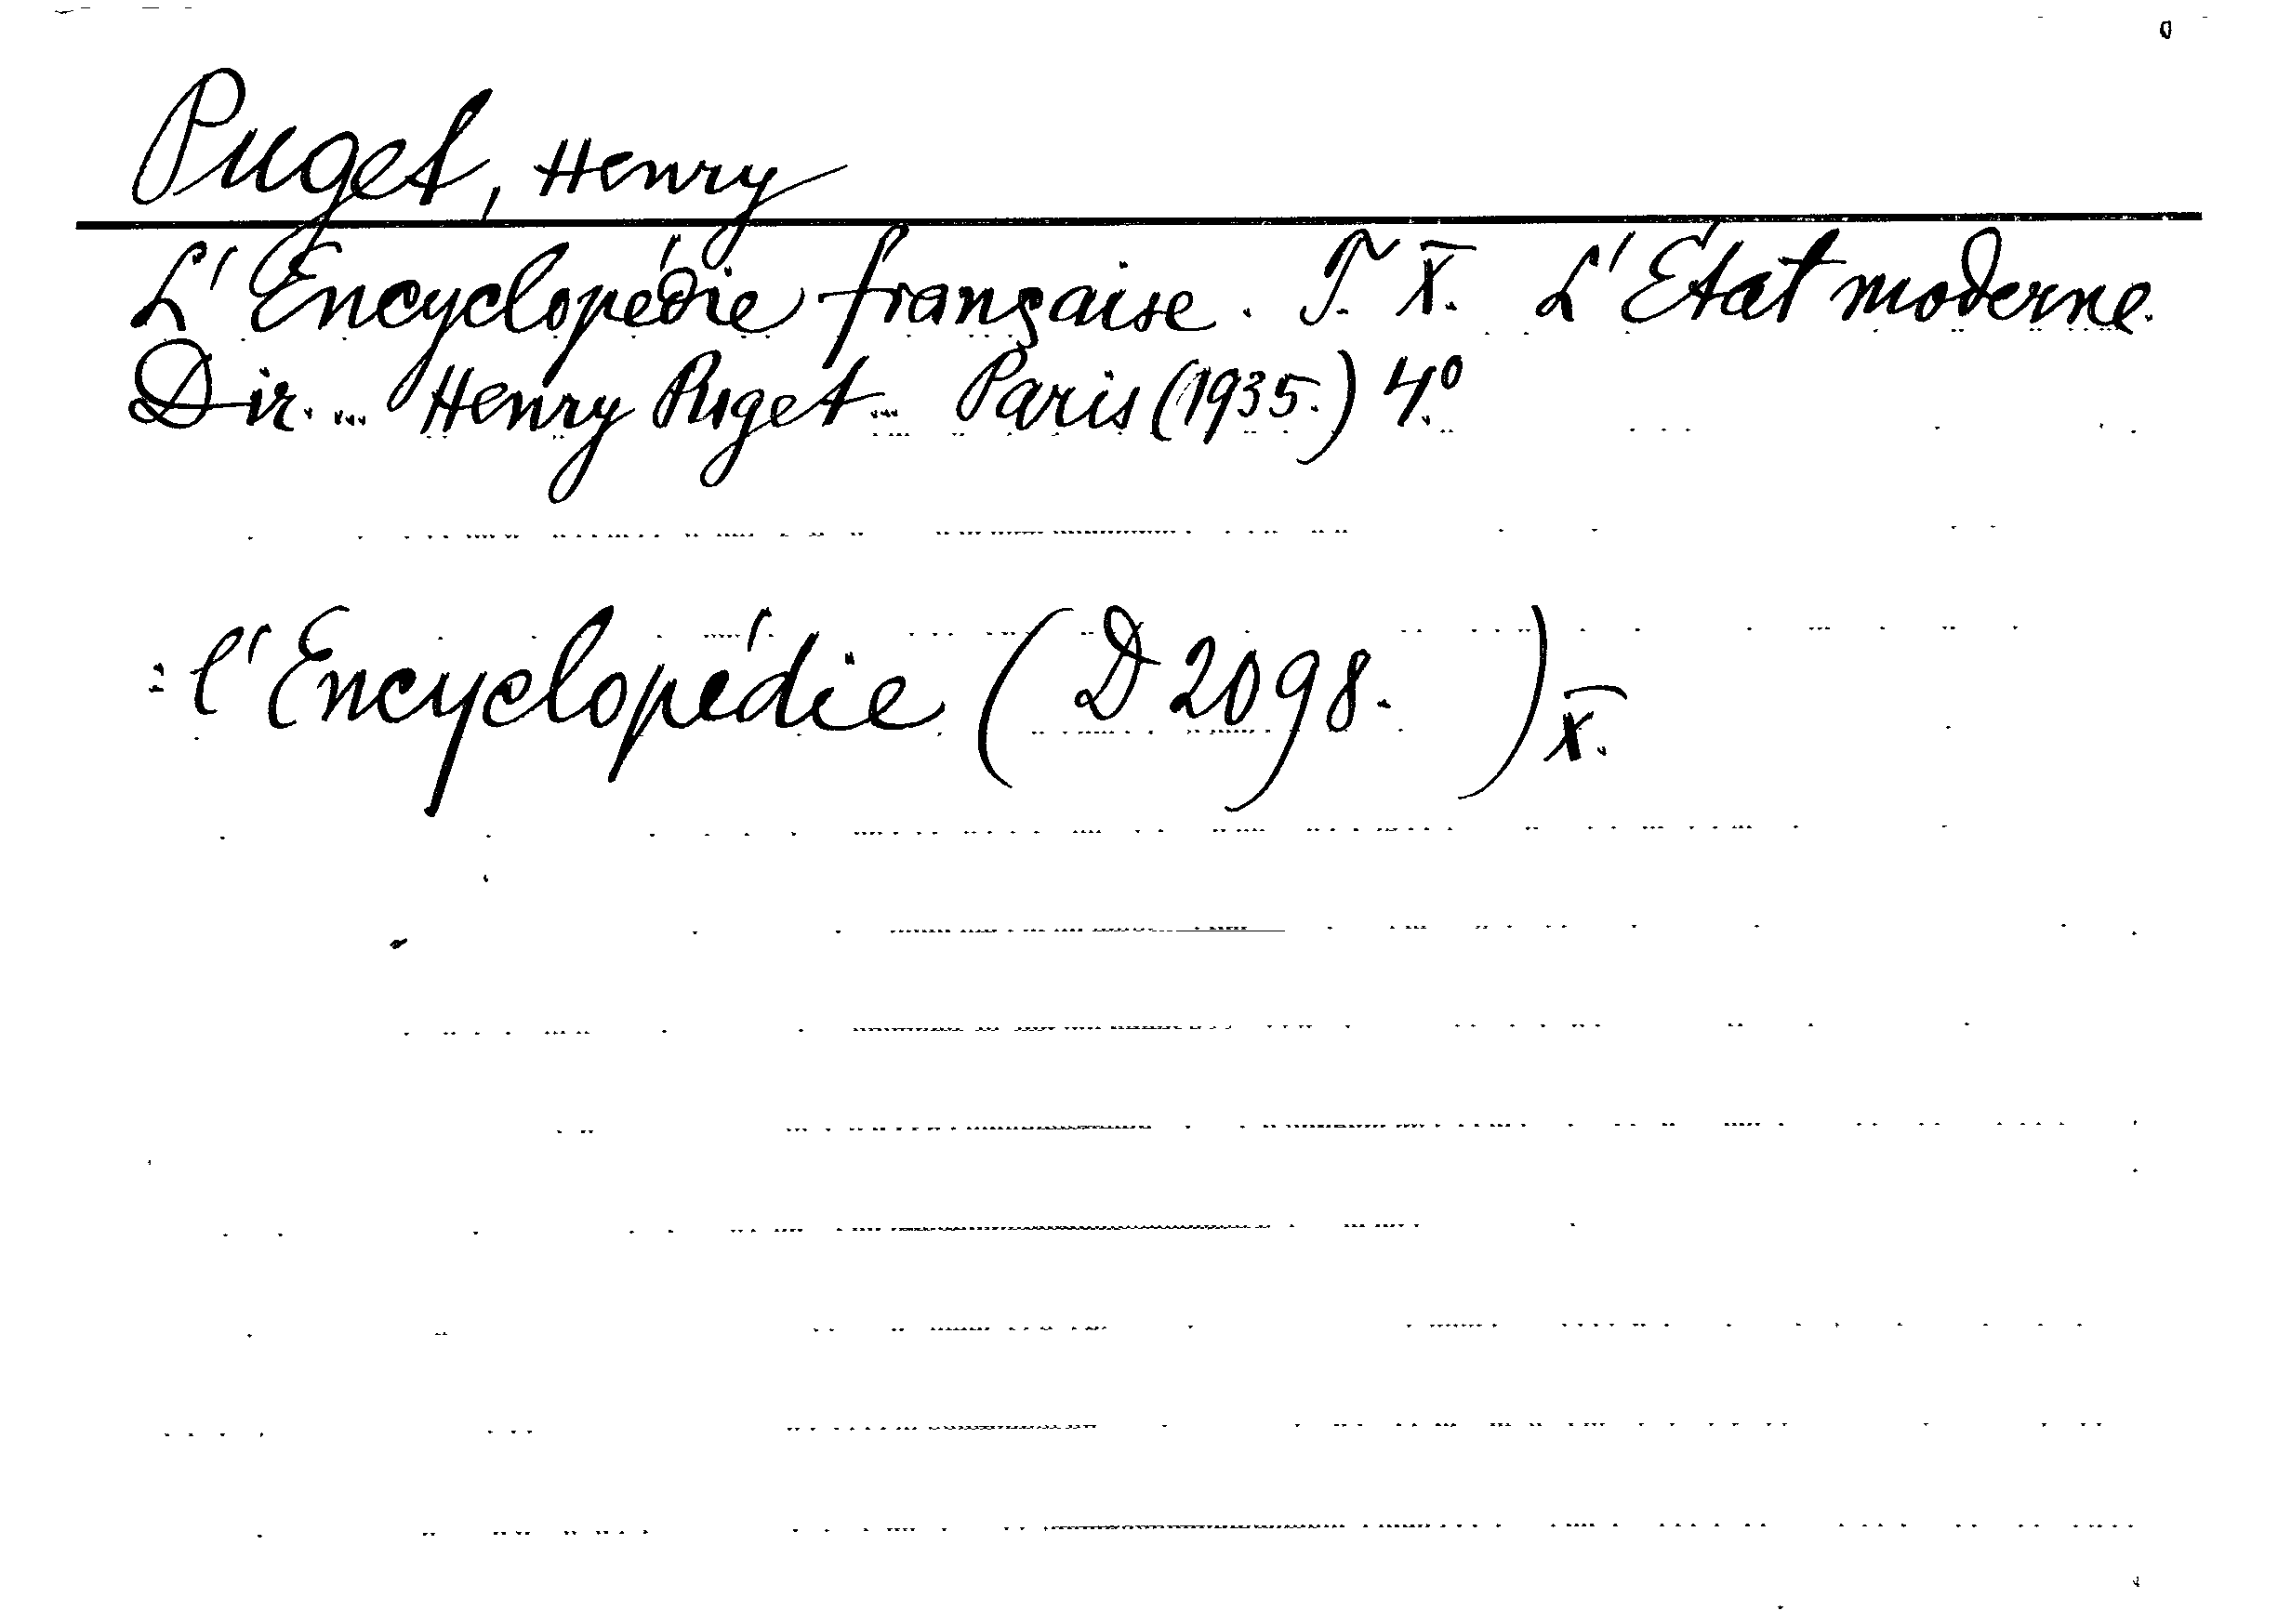 Puget, Henry
L'Encyclopédie française. T. X. L'État moderne.
Dir. ... Henry Puget ... Paris (1935.) 4°
= l'Encyclopédie (D 2098. ) X.